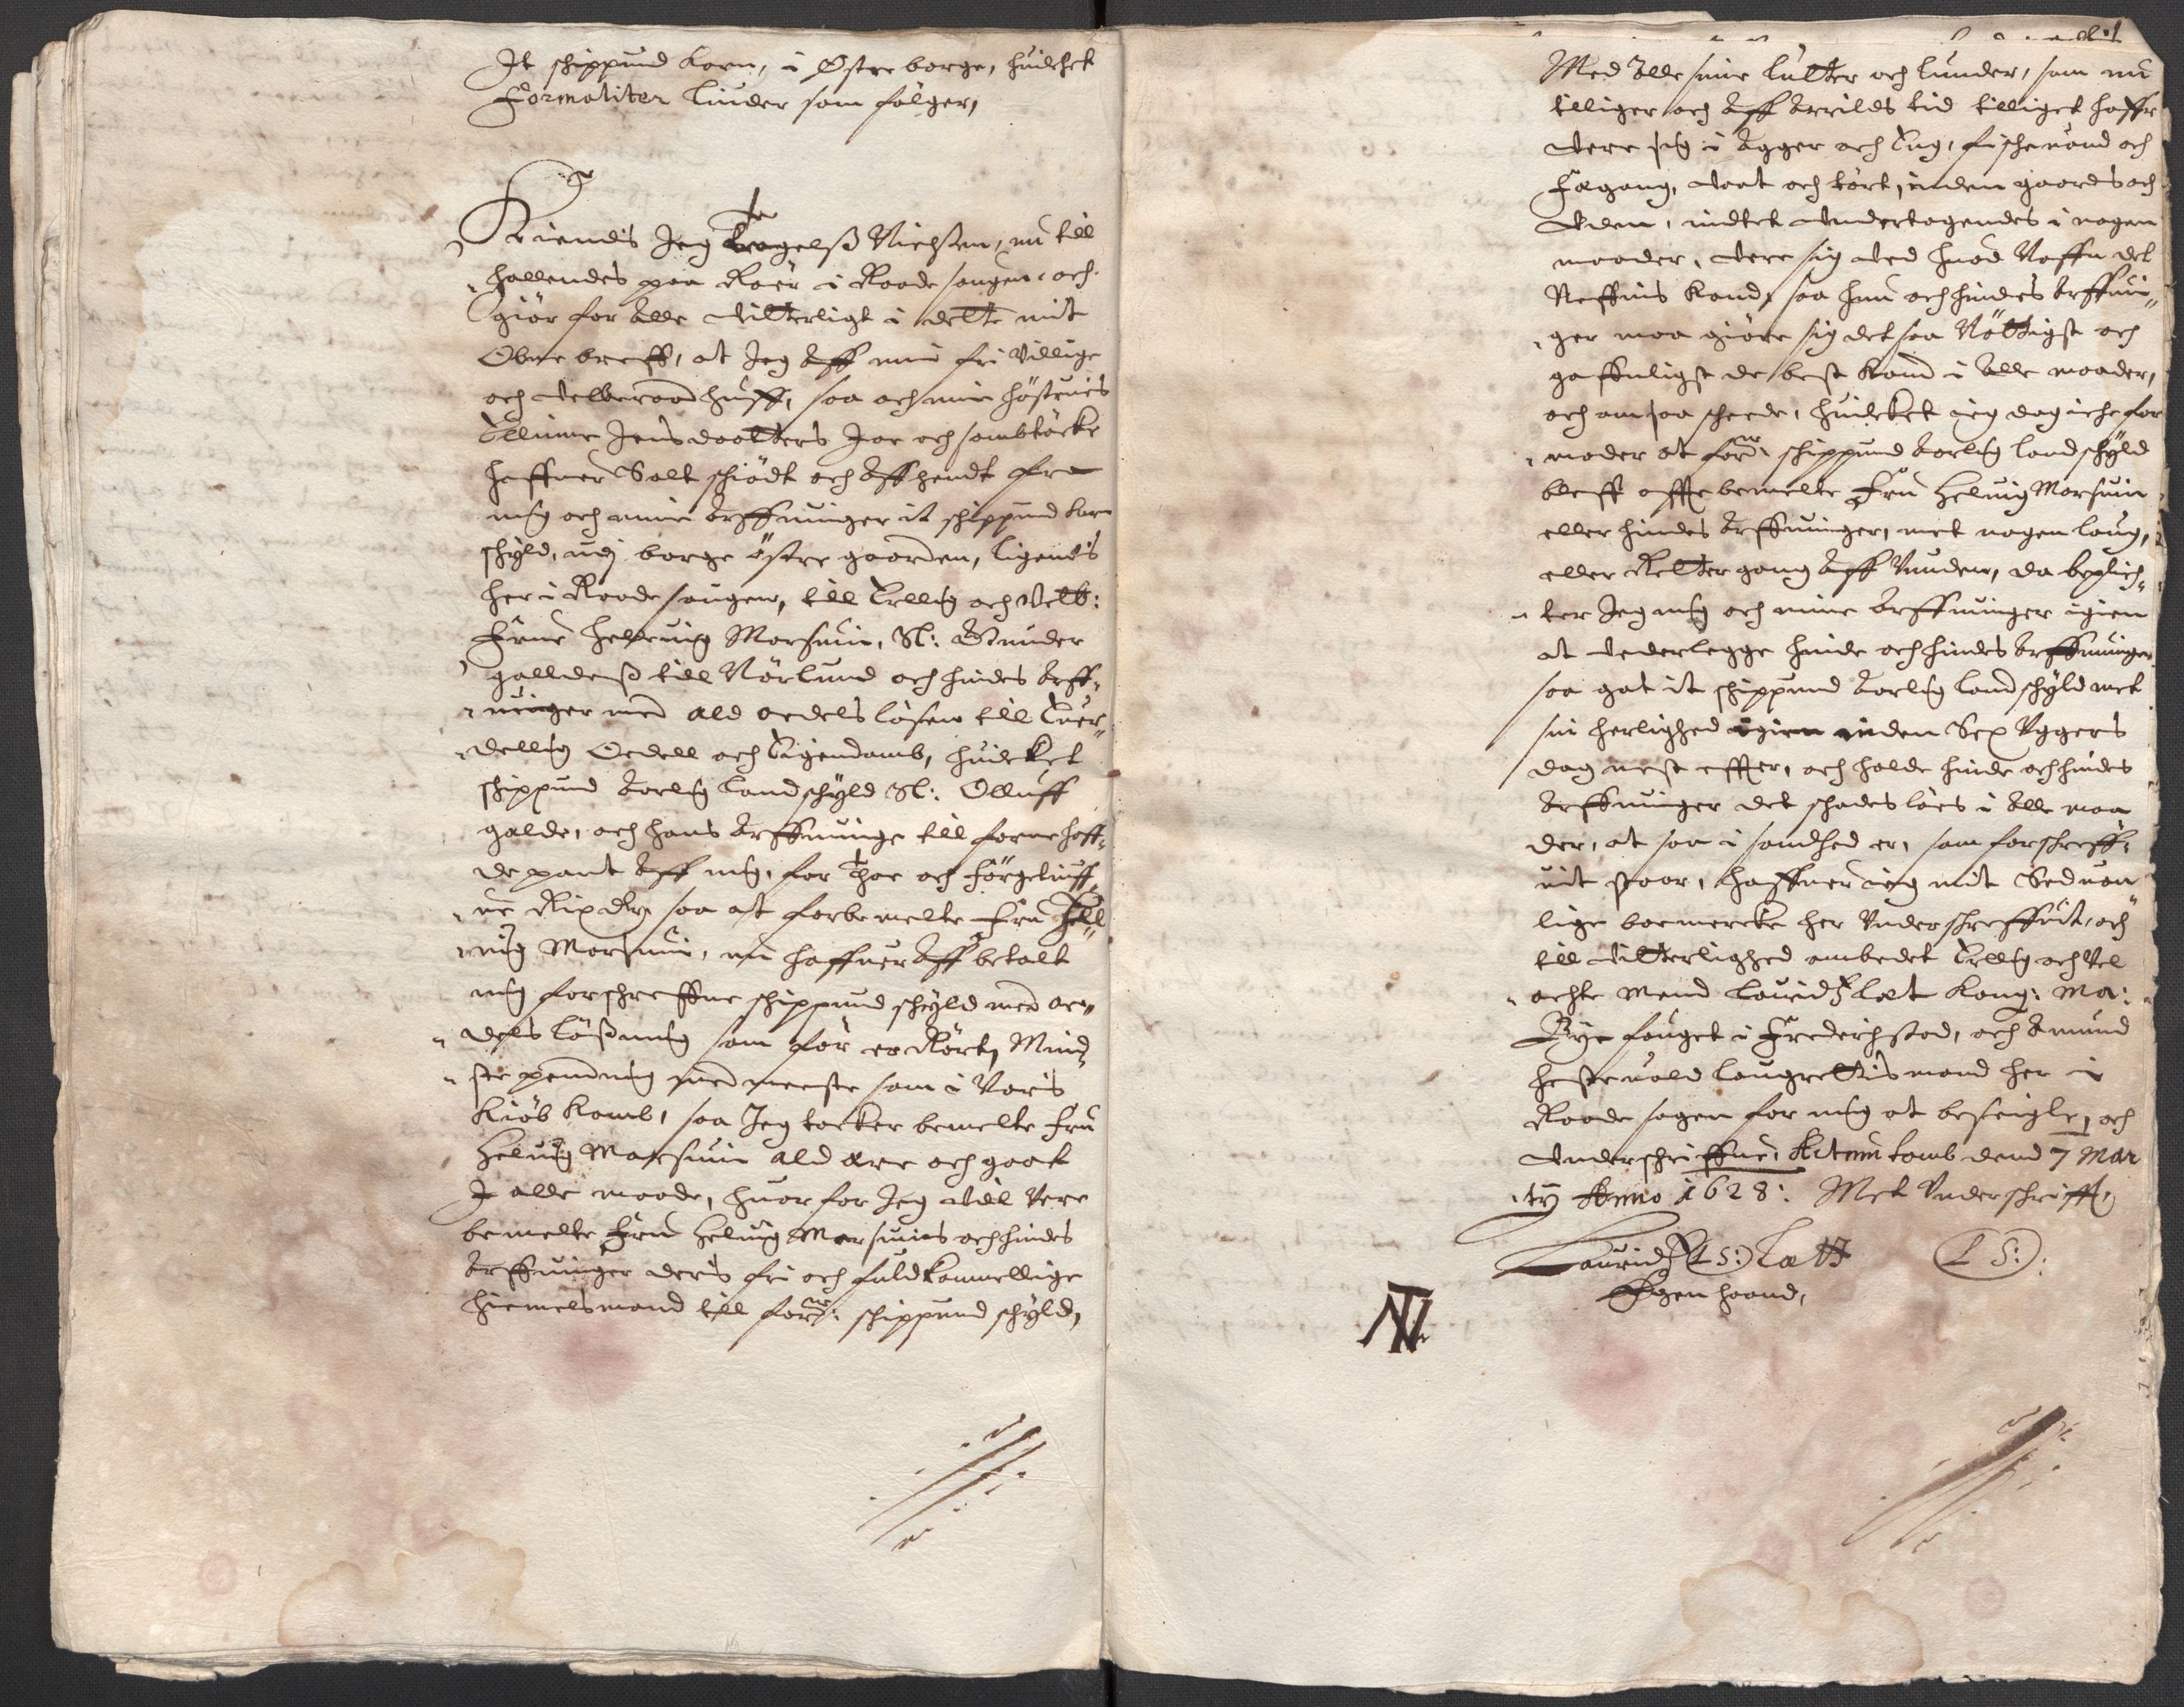 It schippund korn, i Østre borge, huilchet
Formaliter liuder som følger,
Kiendis Jeg Nielsen, nu till
hallendes paa Roer i Raade sougen, och
giör for alle vitterligt i dette mit
Obne breff, at Jeg aff min fri villige
och velberaad huff, saa och min höstrues
Ellinne Jens daatters Jae och sambtöcke
haffuer Salt schiödt och affhendt fra
mig och mine Arffuinger it schippund korn
schyld, udj borge östre gaarden, ligends
her i Raade sougen, till Erllig och Velb:
Frue Helluig Marsuin, Sl: Gunder
galldenss till Nörlund och hindes Arff-
uinger med ald oedels lösen till Euer-
dellig Oedell och Eigendomb, huilket
schippund Aarlig Landschyld Sl: Olluff
galde, och hans Arffuinge till forne haff-
de pant aff mig, for Thoe och Förgetiuff
ue Rixdlr, saa att forbemelte Fru Hell
uig Marsuin, nu haffuer aff betalt
mig forschreffne schippund schyld med oe-
dels lößning som for er Rört, Mind
ste pending med meeste som i Voris
Kiöb komb, saa Jeg tacker bemelte Fru
Heluig Marsuin ald ære och gaat
I alle maade, huor for Jeg vill Vere
bemelte Fru Heluig Marsuins och hindes
Arffuinger deris fri och fuldkommellige
hiemelsmand till forne: schippund schyld,
Med alle sine lutter och lunder, som nu
tilliger och aff Arrilds tid tilliget haffr
vere sig i Agger och Eng, fischevand och
Fægang, vaat och tört, inden gaards och
Uden, intet Undertagendes i nogen
maader, vere sig ved huad Naffn det
Neffnis kand, saa hun och hindes Arffuin-
ger maa giöre sig det saa Nöttigst och
gaffnligst de best kand i alle maader,
och om saa scheede, huilcket ieg dog iche for
moder at forne schippund Aarlig landschyld
bleff offte bemelte Fru Heluig Marsuin
eller hindes Arffuinger, met nogen loug,
eller Rettergang aff Vunden, da beplich-
ter Jeg mig och mine Arffuinger igien
at vederlegge hinde och hindes Arffuinger
saa gat it schippund Aarlig landschyld met
sin herlighed igien inden Sex Uggers
dag nest effter, och holde hinde och hindes
Arffuinger det schadeslöes i alle maa
der, at saa i sandhed er, som forschreff-
uit staar, haffuer ieg mit Seduon
lige boemercke her Underschreffuit, och
till vitterlighed ombedet Erllig och Vel
achte Mend Lauridz Læt Kong: Ma:
Bye fouget i Frederichstad, och Amund
heste vold Laugrettismand her i
Raade sogen for mig at besegle, och
Underschriffue, Actum tomb dend 7 Mar
tij Anno 1628: Met Underschrifft,
Lauridz (L S:) Lætt (L S:):
Egen haand,